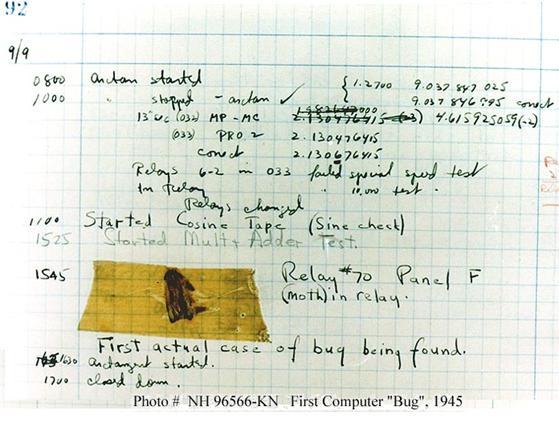 92
9/9
0800 arctan started { 1.2700 9.037 847 025
1000 " stopped - arctan ✓ 9.037 846 995 conect
13"uc (032) MP - MC 2.130476415 4.615925059(-2)
(033) PRO 2 2.130476415
conect 2.130676415
Relays 6-2 in 033 failed special speed test
In Relay " 10,000 test.
Relays changed
1100 Started Cosine Tape (Sine check)
1525 Started Mult + Adder Test.
1545 Relay #70 Panel F
(moth) in relay.
First actual case of bug being found.
1630 arctangent started.
1700 closed down.
Photo # NH 96566-KN First Computer "Bug", 1945